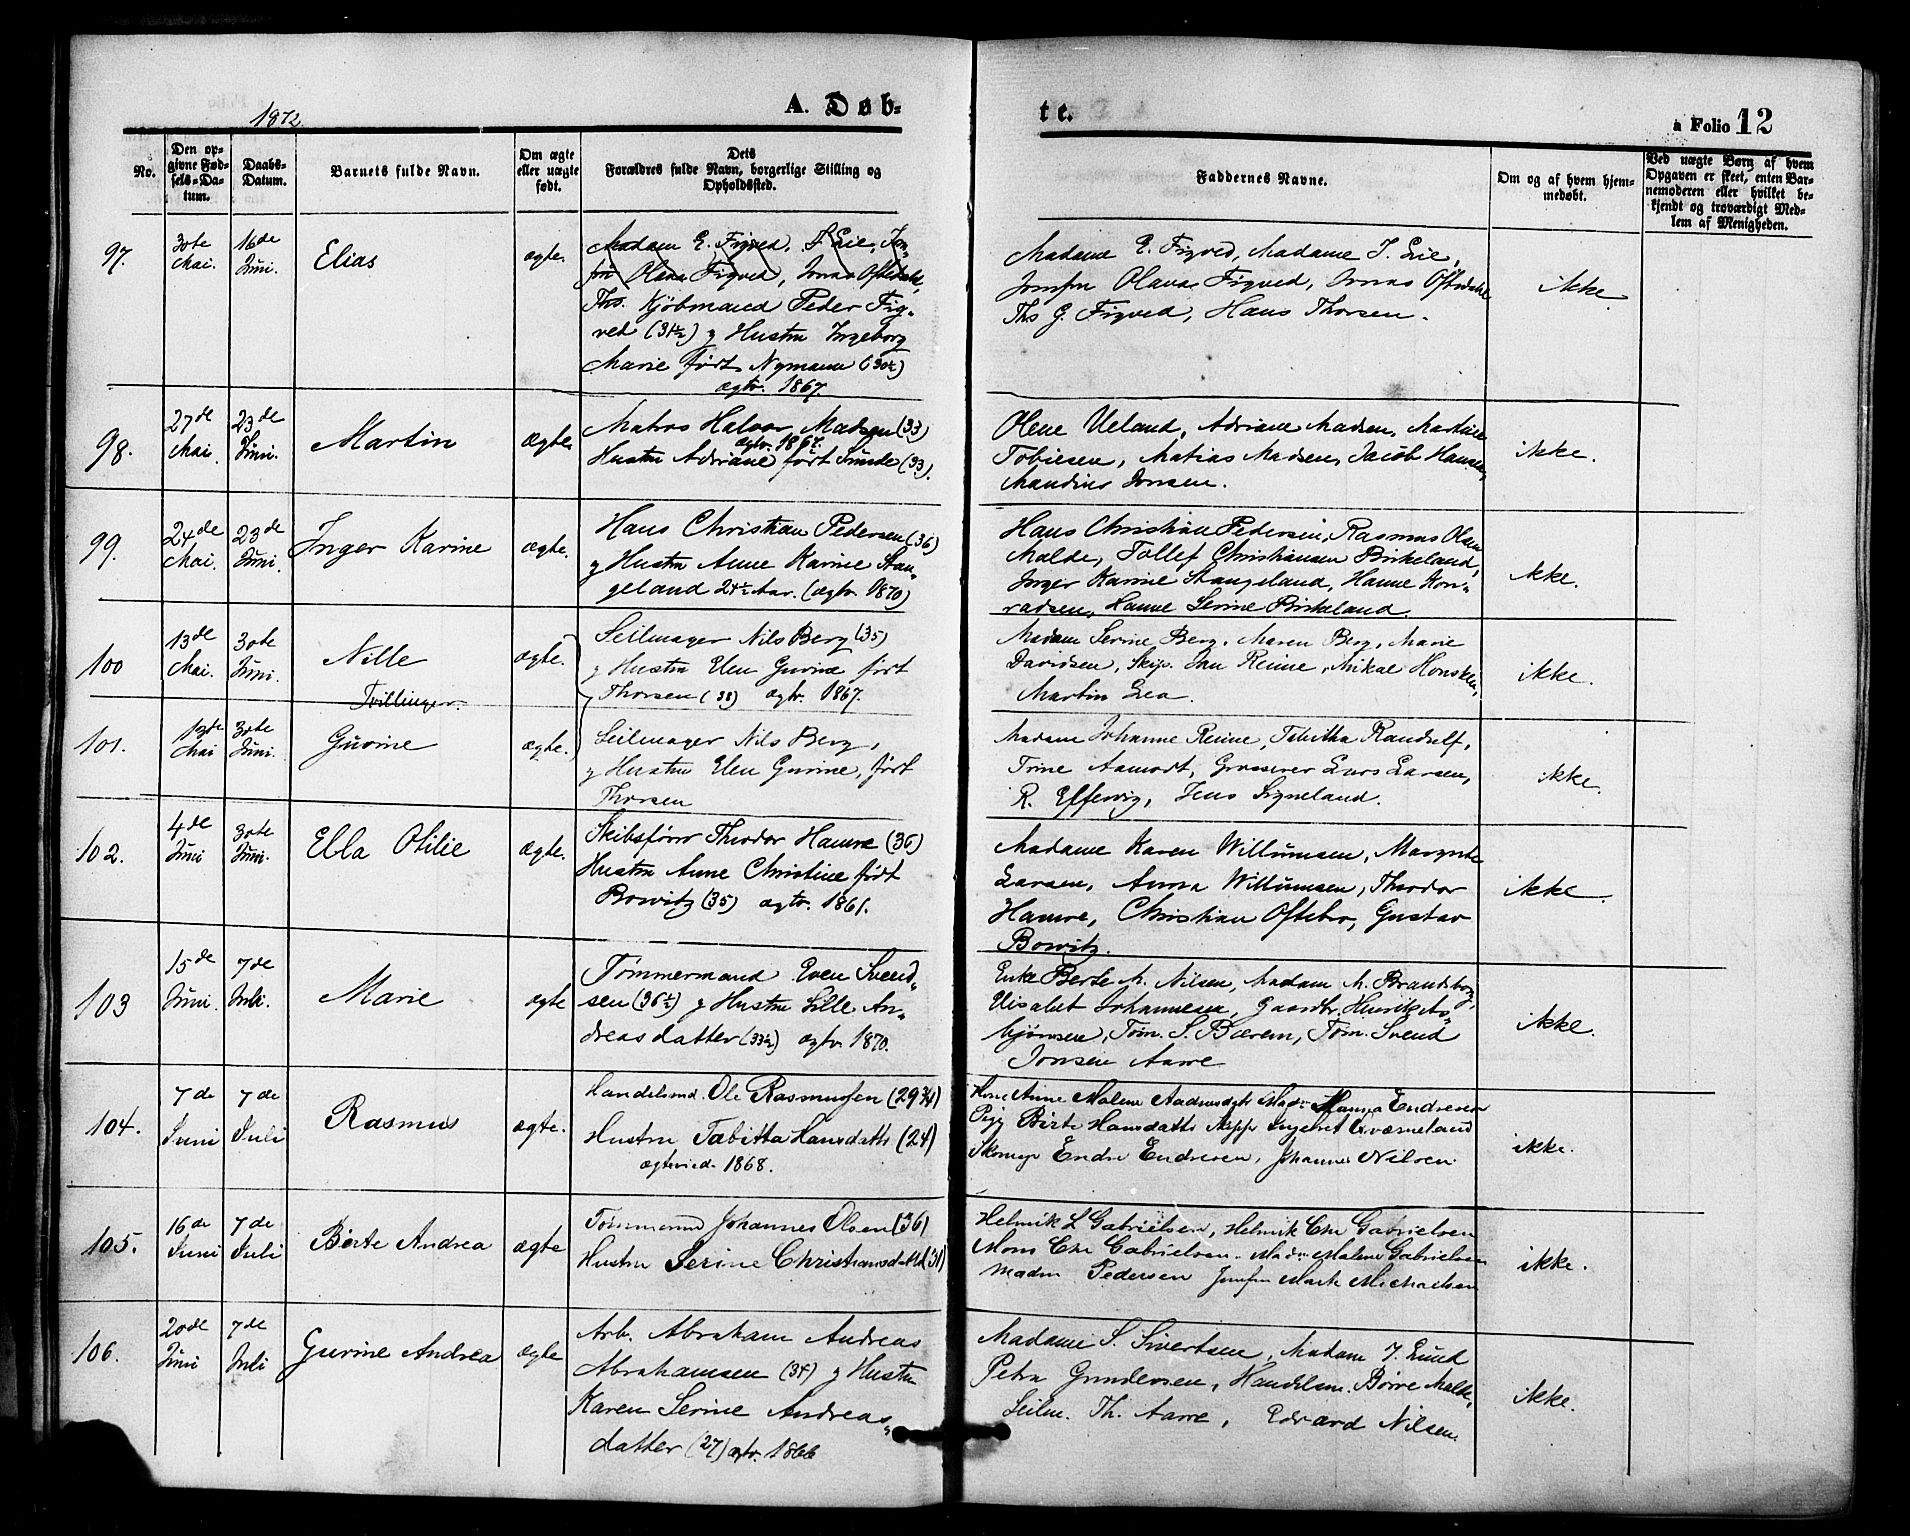 1872.
A. Døb-
te.
a Folio 12
No.
Den op-
givne Fød-
sels-Da-
tum.
Daabs-
Datum.
Barnets fulde Navn.
Om ægte
eller uægte
født.
Dets
Forældres fulde Navn, borgerlige Stilling og
Opholdssted.
Faddernes Navne.
Om og af hvem hjem-
medøbt.
Ved uægte Børn af hvem
Opgaven er skeet, enten Bar-
nemoderen eller hvilket be-
kjendt og troværdigt Med-
lem af Menigheden.
97.
30te
Mai.
16de
Juni.
Elias
ægte.
Madam E. Figved, I. Lie, Jom-
fru Olava Figved, Jonas Oftedahl,
Ths. Kjöbmand Peder Fig-
ved (31½) g Hustru Ingeborg
Marie født Nymann (30½)
ægtv. 1867.
Madame E. Figved, Madame I. Lie,
Jomfru Olava Figved, Jonas Oftedahl
Ths G. Figved, Hans Thorsen.
ikke
98.
27de
Mai.
23de
Juni.
Martin
ægte
Matros Halvor Madsen (33)
ægtv. 1867.
Hustru Adriane født Sunde (33).
Olene Ueland, Adriane Madsen, Martine
Tobiesen, Matias Madsen, Jacob Hansen,
Maudius Jonsen.
ikke.
99.
24de
Mai.
23de
Juni.
Inger Karine
ægte.
Hans Christian Pedersen (36)
g Hustru Anne Karine Stan-
geland 24½ Aar. (ægtv. 1870)
Hans Christian Pedersen, Rasmus Olsen
Malde, Tollef Christiansen Birkeland,
Inger Karine Stangeland, Hanne Kon-
radsen, Hanne Serine Birkeland.
ikke.
100
13de
Mai.
30te
Juni.
Nille
Tvillinger.
ægte.
Seilmager Nils Berg (35)
g Hustru Elen Gurine født
Thorsen (38) ægtv. 1867.
Madam Serine Berg, Maren Berg, Marie
Davidsen, Skip. Jan Reime, Mikal Honsken,
Martin Lea.
ikke.
101.
13de
Mai
30te
Juni.
Gurine
ægte.
Seilmager Nils Berg,
g Hustru Elen Gurine, født
Thorsen
Madam Johanne Reime, Tabitha Randulf,
Trine Aamodt, Grosserer Lars Larsen,
R. Effervig, Jens Signeland.
ikke.
102.
4de
Juni
30te
Juni.
Ebba Otilie
ægte.
Skibsfører Theodor Hamre (36)
Hustru Anne Christine født
Bowitz (35) ægtv. 1861.
Madame Karen Willumsen, Margrete
Larsen, Anna Willumsen, Theodor
Hamre, Christian Oftebro, Gustav
Bowitz.
ikke.
103
15de
Juni.
7de
Juli.
Marie
ægte
Tømmermand Even Svend-
sen (36½) g Hustru Sille An-
dreasdatter (33½) ægtv. 1870.
Enke Berte M. Nilsen, Madam M. Brandsberg,
Elisabet Johannesen, Gaardbr. Henrik As-
bjørnsen, Tøm. S. Bærem, Tøm. Svend
Jonsen Aarre
ikke.
104.
7de
Juni
7de
Juli
Rasmus
ægte.
Handelsmd. Ole Rasmussen (29¾)
Hustru Tabitta Hansdattr (24)
ægteviede 1868.
Kone Anne Malene Aadnesdatr Madm Hanna Endresen
Pige Birte Hansdattr Pige Ingeret Kvæsneland
Skomgr Endre Endresen, Johannes Nilsen
ikke.
105.
16de
Juni
7de
Juli
Børte Andrea
ægte
Tømmermd Johannes Olsen (36)
Hustru Serine Christiansdattr (31)
Helmik L Gabrielsen, Helmik Chr Gabrielsen
Mons Chr Gabrielsen. Madm Malene Gabrielsen
Madm Pedersen Jomfru Marte Michaelsen
ikke.
106.
20de
Juni
7de
Juli
Gurine Andrea
ægte
Arb. Abraham Andreas
Abrahamsen (34) g Hustru
Karen Serine Andreas-
datter (27) ægtv. 1866
Madame S. Sivertsen, Madam J. Lund
Petra Gundersen, Handelsm. Børre Malde,
Seilm. Th. Aarre, Edvard Nilsen
ikke.